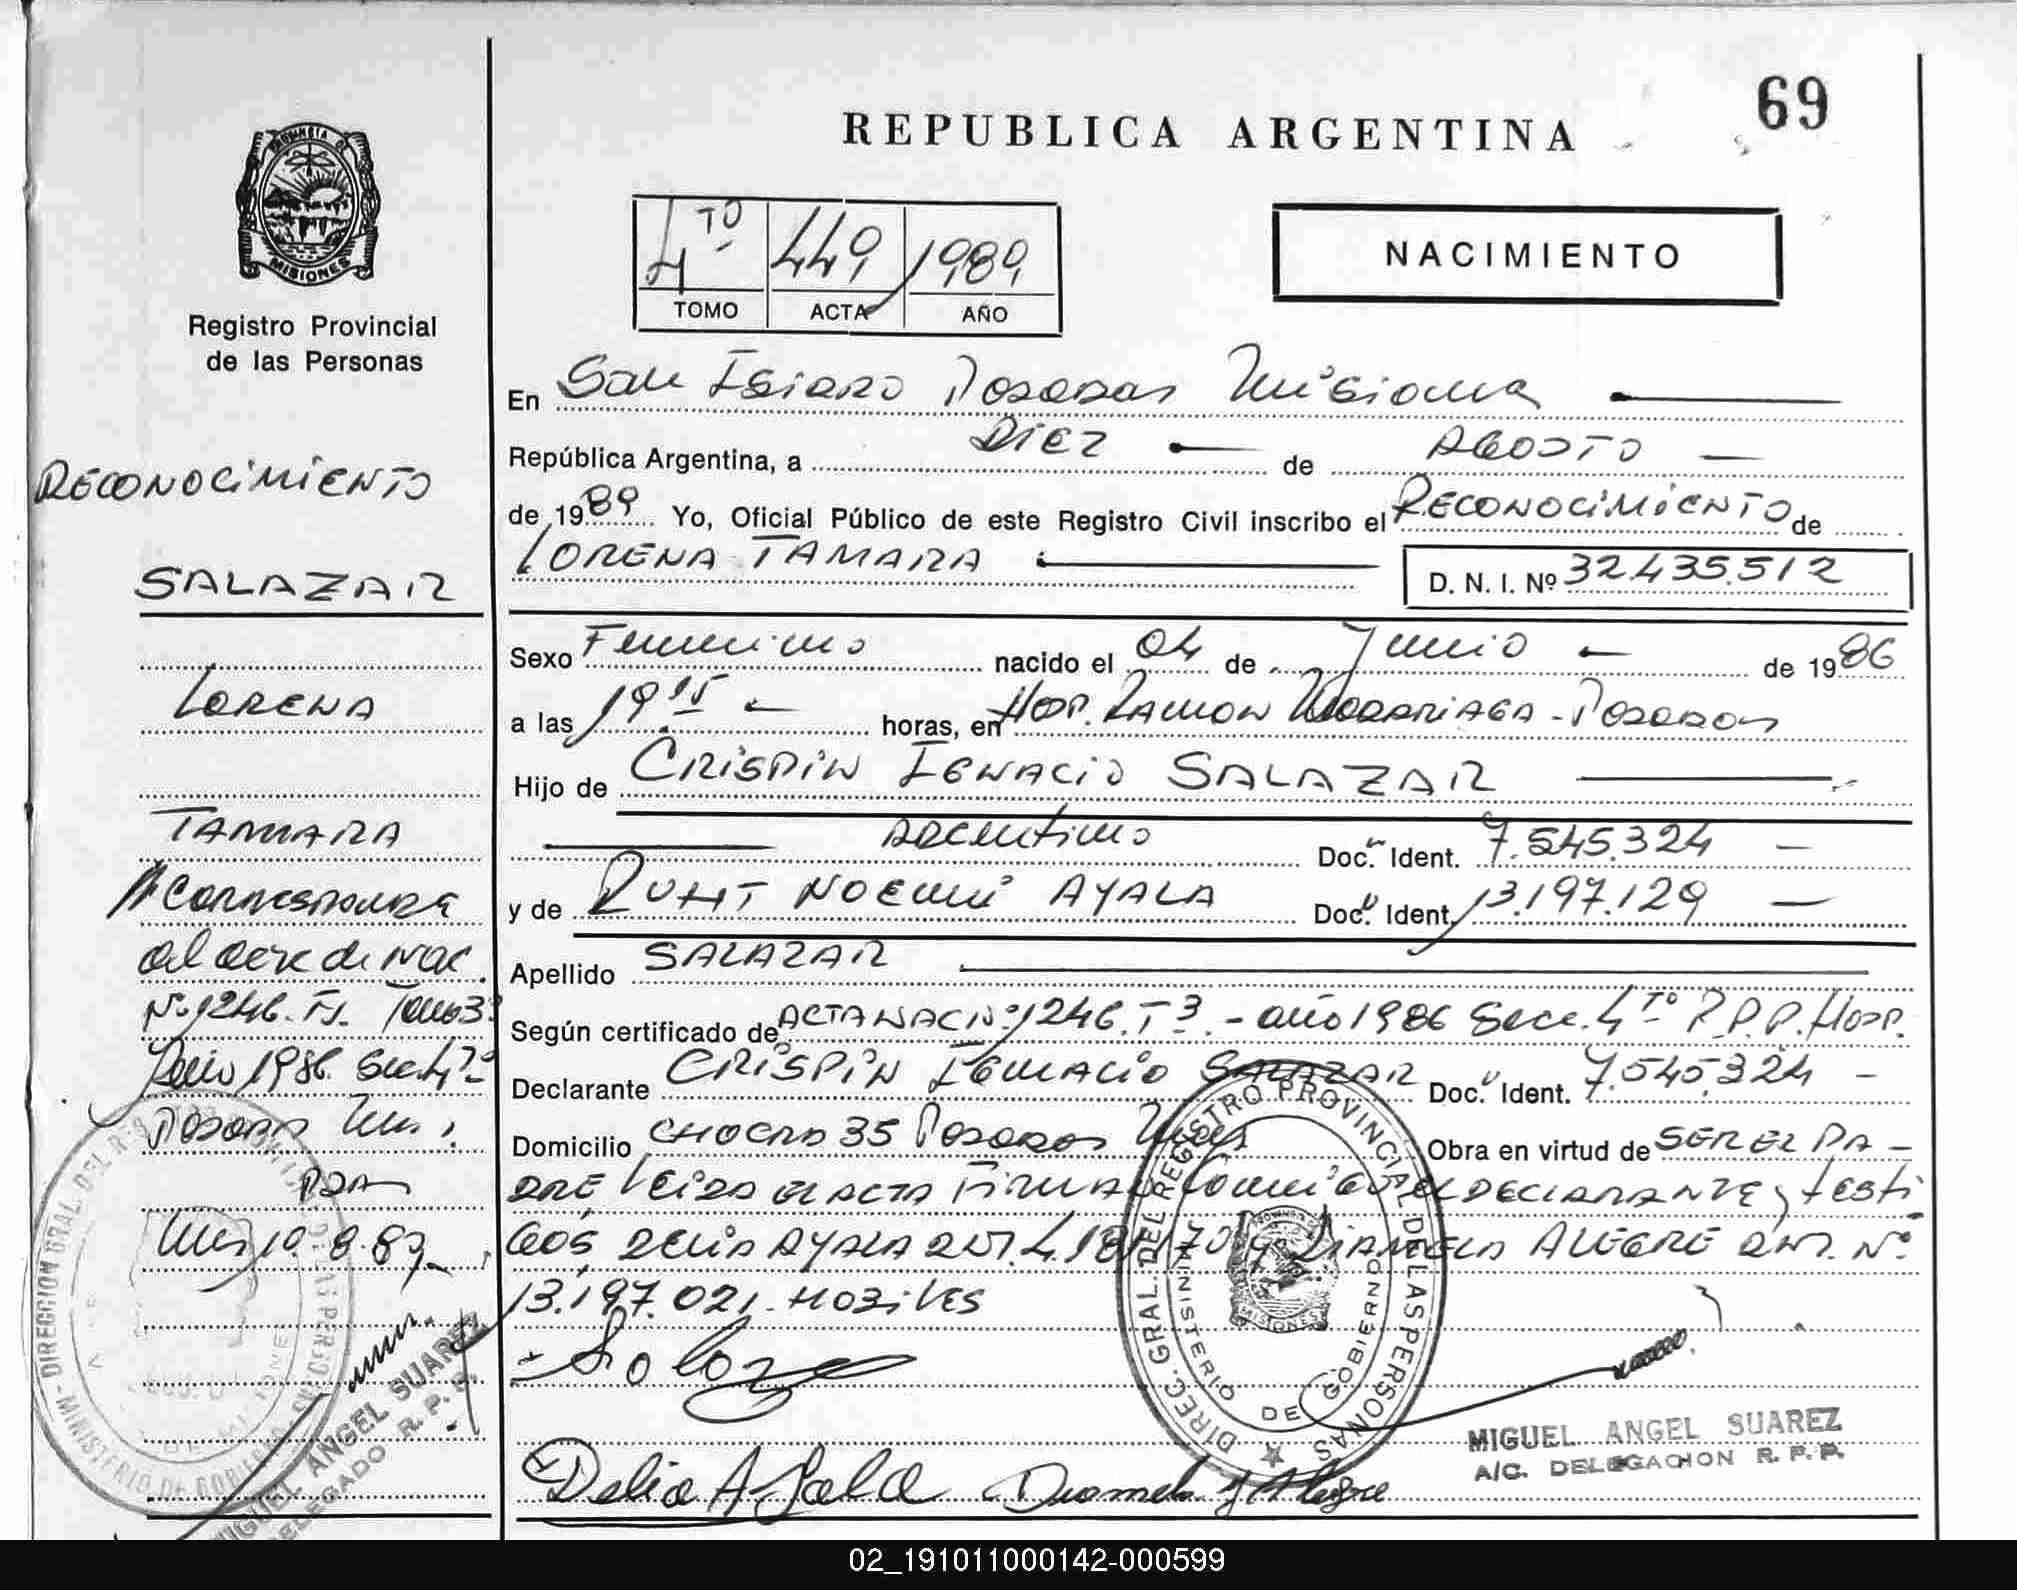 69
REPUBLICA ARGENTINA
PROVINCIA DE
MISIONES
Registro Provincial
de las Personas
4TO 449 1989
TOMO ACTA AÑO
NACIMIENTO
RECONOCIMIENTO
SALAZAR
LORENA
TAMARA
Corresponde
al acta de Nac.
Nº 1246. Tomo 3º
1986. Secc. 4TO
Posadas
10.8.89
MIGUEL ANGEL SUAREZ
DELEGADO R. P. P.
En San Isidro Posadas Misiones
República Argentina, a DIEZ de AGOSTO
de 1989 Yo, Oficial Público de este Registro Civil inscribo el RECONOCIMIENTO de
LORENA TAMARA D. N. I. Nº 32.435.512
Sexo Femenino nacido el 04 de Junio de 1986
a las 19 15 horas, en HOSP. RAMON MADARIAGA - Posadas
Hijo de CRISPIN IGNACIO SALAZAR
ARGENTINO Doc. Ident. 7.545.324
y de RUHT NOEMI AYALA Doc. Ident. 13.197.129
Apellido SALAZAR
Según certificado de ACTA NAC Nº 1246. T 3. - año 1986 Secc. 4TO R.P.P. Hosp.
Declarante CRISPIN IGNACIO SALAZAR Doc. Ident. 7.545.324
Domicilio CHACRA 35 Posadas Obra en virtud de SER EL PA-
DRE LEIDA EL ACTA FIRMAN EL DECLARANTE y testi
GOS DELIA AYALA ALEGRE Nº
13.197.021
Delia Ayala
DIREC. GRAL. DEL REGISTRO PROVINCIAL DE LAS PERSONAS
MINISTERIO DE GOBIERNO
MISIONES
MIGUEL ANGEL SUAREZ
A/C. DELEGACION R. P. P.
02_191011000142-000599